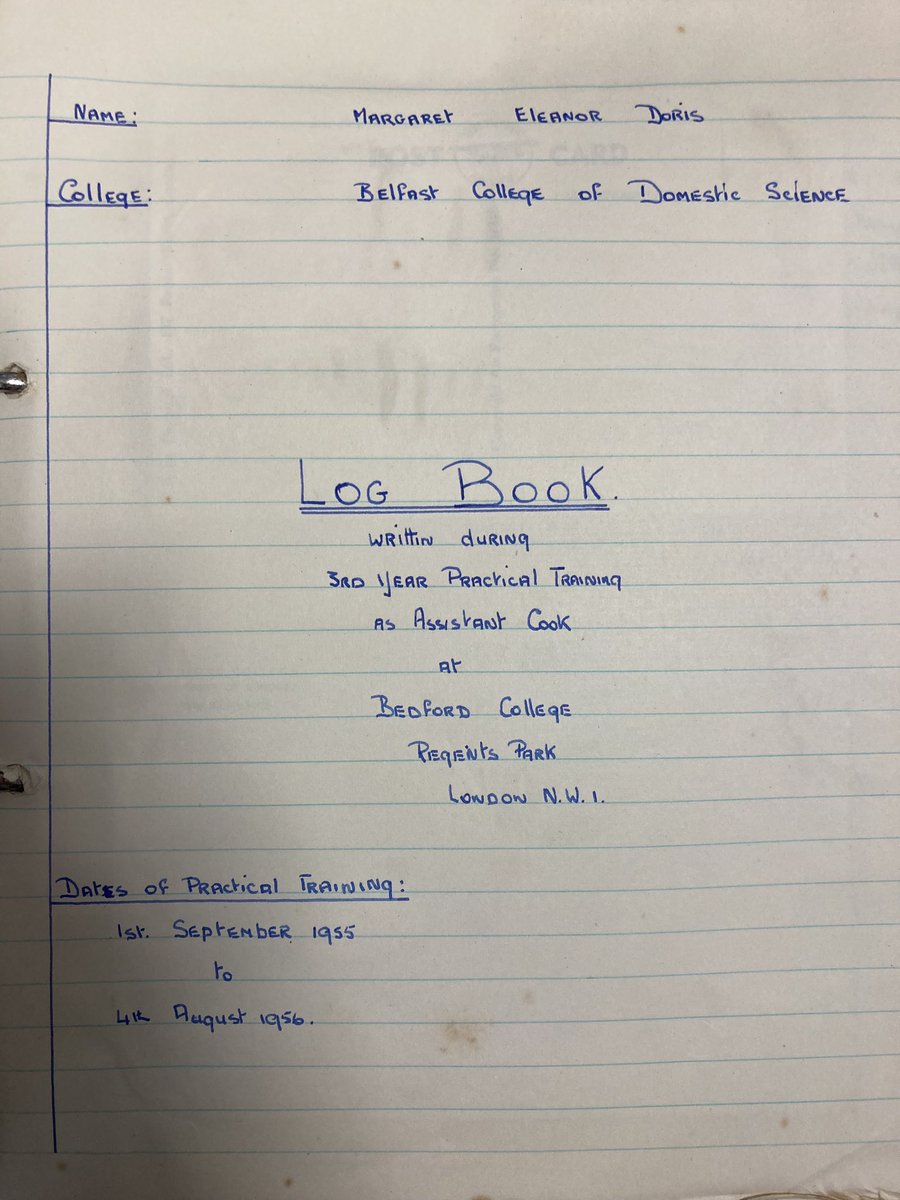 Name: Margaret Eleanor Doris
College: Belfast College of Domestic Science
POST CARD
Log Book.
writtin during
3rd year Practical Training
as Assistant Cook
at
Bedford College
Regents Park
London N.W.1.
Dates of Practical Training:
1st. September 1955
to
4th August 1956.